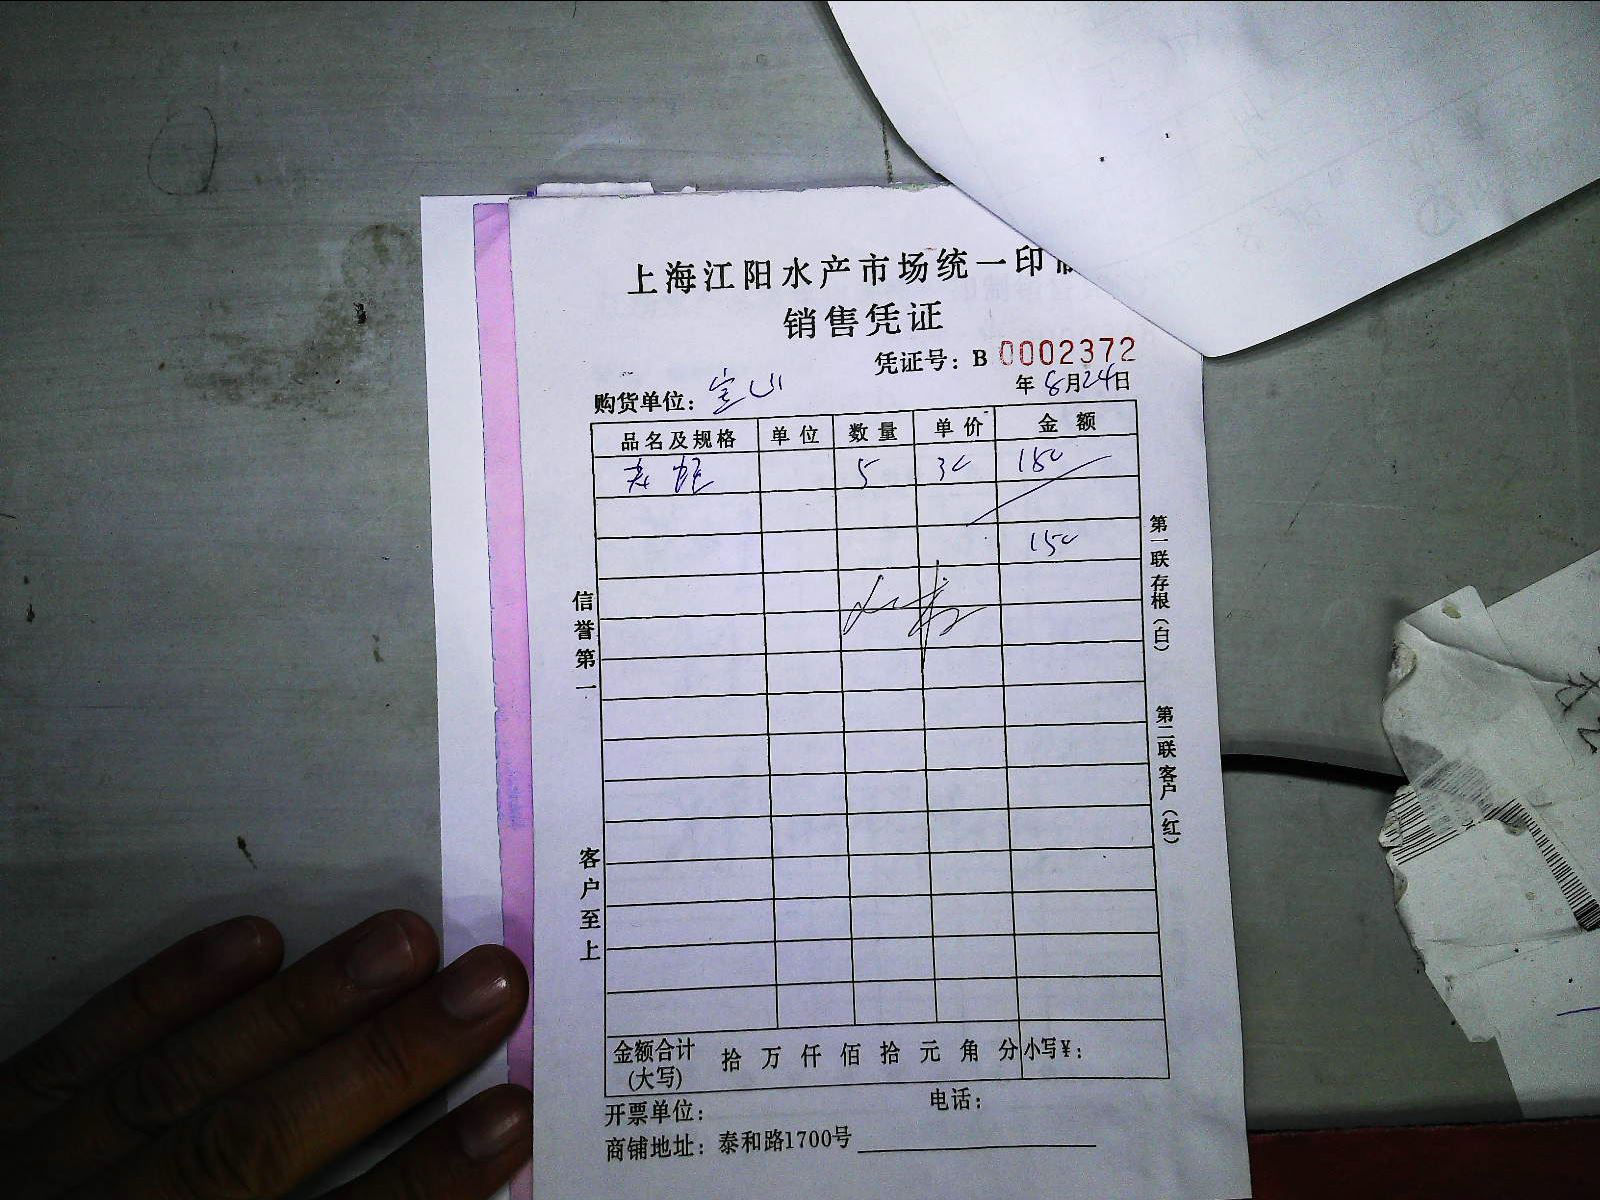 上海江阳水产市场统一印制
销售凭证
凭证号：B 0002372
购货单位：宝山 年8月24日
品名及规格 单位 数量 单价 金额
5 30 150
150
信誉第一
客户至上
第一联存根（白）
第二联客户（红）
金额合计(大写) 拾 万 仟 佰 拾 元 角 分 小写¥：
开票单位： 电话：
商铺地址：泰和路1700号